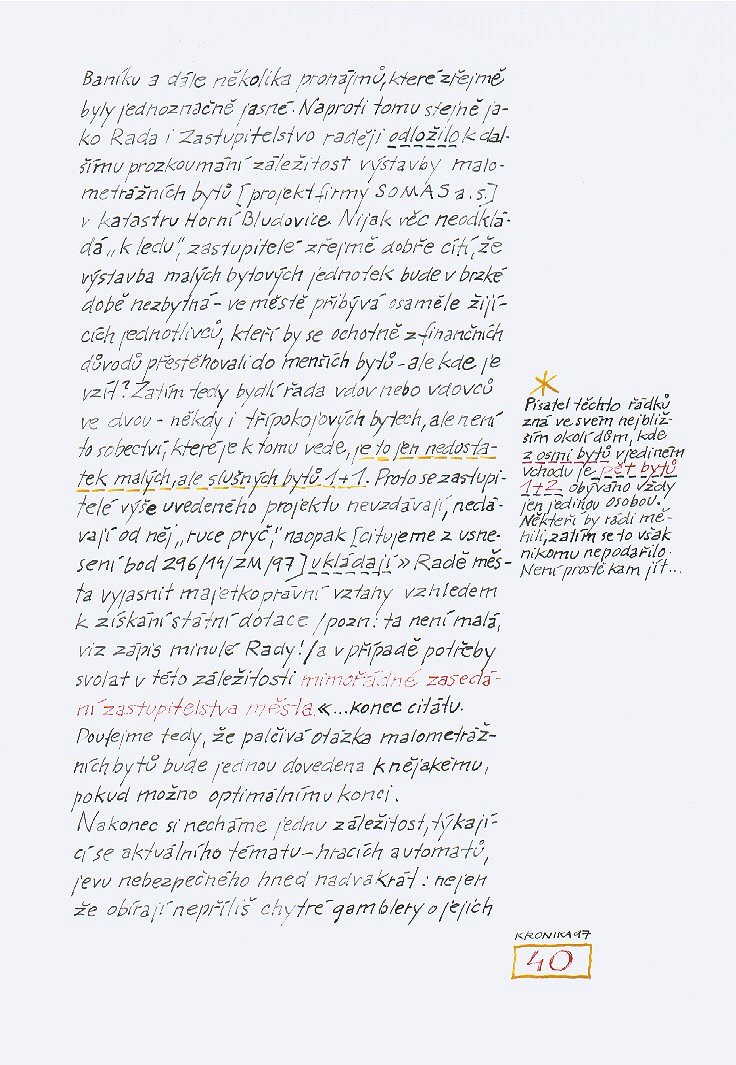 Baníku a dále několika pronájmů, které zřejmě
byly jednoznačně jasné. Naproti tomu stejně ja-
ko Rada i Zastupitelstvo raději odložilo k dal-
šímu prozkoumání záležitost výstavby malo-
metrážních bytů [projekt firmy SOMAS a.s.]
v katastru Horní Bludovice. Nijak věc neodklá-
dá „k ledu", zastupitelé zřejmě dobře cítí, že
výstavba malých bytových jednotek bude v brzké
době nezbytná – ve městě přibývá osaměle žijí-
cích jednotlivců, kteří by se ochotně z finančních
důvodů přestěhovali do menších bytů – ale kde je
vzít? Zatím tedy bydlí řada vdov nebo vdovců
ve dvou – někdy i třípokojových bytech, ale není
to sobectví, které je k tomu vede, je to jen nedosta-
tek malých, ale slušných bytů 1+1. Proto se zastupi-
telé výše uvedeného projektu nevzdávají, nedá-
vají od něj „ruce pryč", naopak [citujeme z usne-
sení bod 296/14/ZM/97] ukládají » Radě měs-
ta vyjasnit majetkoprávní vztahy vzhledem
k získání státní dotace /pozn: ta není malá,
viz zápis minulé Rady!/ a v případě potřeby
svolat v této záležitosti mimořádné zasedá-
ní zastupitelstva města «...konec citátu.
Doufejme tedy, že palčivá otázka malometráž-
ních bytů bude jednou dovedena k nějakému,
pokud možno optimálnímu konci.
Nakonec si necháme jednu záležitost, týkají-
cí se aktuálního tématu – hracích automatů,
jevu nebezpečného hned nadvakrát: nejen
že obírají nepříliš chytré gamblery o jejich
*
Pisatel těchto řádků
zná ve svém nejbliž-
ším okolí dům, kde
z osmi bytů v jediném
vchodu je pět bytů
1+2 obýváno vždy
jen jedinou osobou.
Někteří by rádi mě-
nili, zatím se to však
nikomu nepodařilo.
Není prostě kam jít...
KRONIKA 97
40